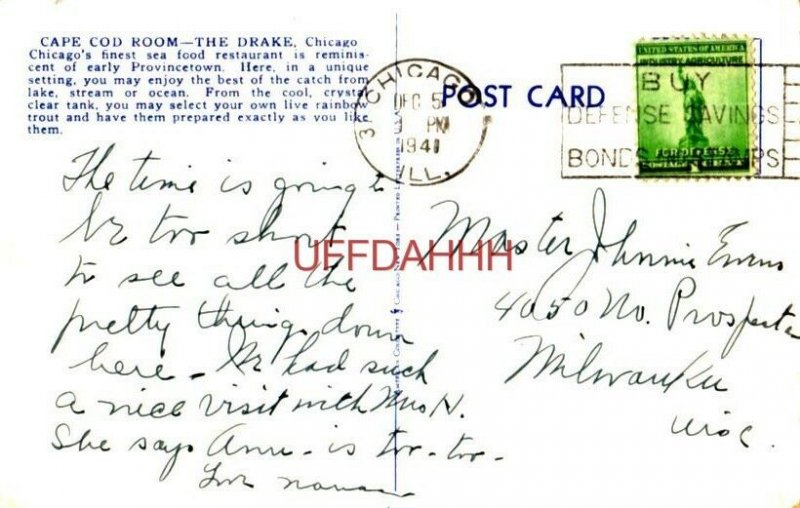 CAPE COD ROOM—THE DRAKE, Chicago
Chicago's finest sea food restaurant is reminis-
cent of early Provincetown. Here, in a unique
setting, you may enjoy the best of the catch from
lake, stream or ocean. From the cool, crystal
clear tank, you may select your own live rainbow
trout and have them prepared exactly as you like
them.
CHICAGO
3
DEC 5
PM
1941
ILL.
POST CARD
BUY
DEFENSE SAVINGS
BONDS
UNITED STATES OF AMERICA
INDUSTRY AGRICULTURE
FOR DEFENSE
The time is going to
be too short
to see all the
pretty things down
here - We had such
a nice visit with Mrs H.
She says Ann - is too - too -
Love
UFFDAHHH
Master Johnnie Evans
4050 No. Prospect
Milwaukee
Wisc